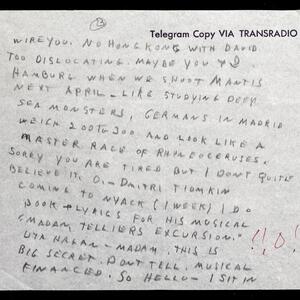 (3)
Telegram Copy VIA TRANSRADIO
WIRE YOU. NO HONGKONG WITH DAVID
TOO DISLOCATING. MAYBE YOU + D.
HAMBURG WHEN WE SHOOT MANTIS
NEXT APRIL - LIKE STUDYING DEEP
SEA MONSTERS, GERMANS IN MADRID
WEIGH 200 TO 300. AND LOOK LIKE A
MASTER RACE OF RHINEOCERUSES.
SORRY YOU ARE TIRED BUT I DON'T QUITE
BELIEVE IT. O. - DMITRI TIOMKIN
COMING TO NYACK (1 WEEK) I DO
BOOK + LYRICS FOR HIS MUSICAL
"MADAM TELLIERS EXCURSION."
UTA HAGAN - MADAM. THIS IS
BIG SECRET. DON'T TELL. MUSICAL
FINANCED. SO HELLO - I SIT IN